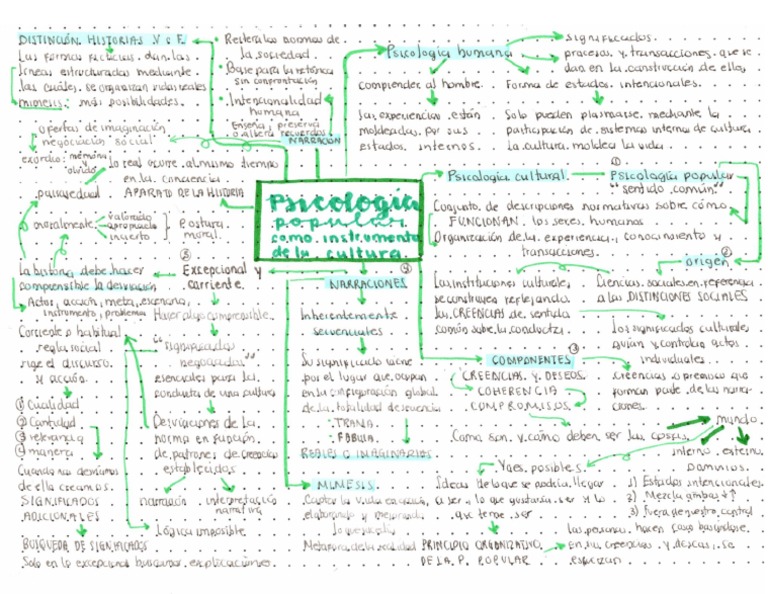 DISTINCIÓN HISTORIAS V o F.
Las formas ficticias dan las
líneas estructuradas mediante
las cuáles se organizan vidas reales
mimesis: más posibilidades.
ofertas de imaginación
negociación social
exordio: memoria y olvido
lo real ocurre al mismo tiempo
en la conciencia
pariguedad
APARATO DE LA HISTORIA
moralmente: valorado
apropiado
incierto
Postura
moral.
La historia debe hacer
comprensible la desviación
Actor, acción, meta, escenario,
instrumento, problema
Corriente o habitual
regla social
rige el discurso
si acción.
① Cualidad
② Cantidad
③ relevancia
④ manera
Cuando nos desviamos
de ella creamos.
SIGNIFICADOS
ADICIONALES
BÚSQUEDA DE SIGNIFICADOS
Solo en lo excepcional buscamos explicaciones.
• Reitera las normas de
la sociedad
• Base para la retórica
sin confrontación
• Intencionalidad
humana
Enseña, preserva
o altera recuerdos
NARRACIÓN
Psicología
popular
como instrumento
de la cultura.
⑤
Excepcional y
corriente.
Hacer algo comprensible.
"significados
negociados"
esenciales para la
conducta de una cultura
Desviaciones de la
norma en función
de patrones de creencias
establecidos
narración
interpretación
narrativa
Lógica imposible
④
NARRACIONES
Inherentemente
secuenciales
Su significado viene
por el lugar que ocupan
en la configuración global
de la totalidad de secuencia
• TRAMA
• FÁBULA
REALES O IMAGINARIOS
MIMESIS
Captar la vida en acción,
elaborando y mejorando
lo que pasa
Metáfora de la realidad
Psicología humana
significados.
procesos y transacciones que se
dan en la construcción de ellos,
Comprender al hombre.
Forma de estados intencionales.
Sus experiencias están
moldeadas por sus
estados internos.
Solo pueden plasmarse mediante la
participación de sistemas internos de cultura
La cultura moldea la vida.
Psicología cultural
①
Psicología popular
"sentido común"
Conjunto de descripciones normativas sobre cómo
FUNCIONAN los seres humanos
Organización de la experiencia, conocimiento y
transacciones.
②
origen
Las instituciones culturales,
se construyen reflejando
las CREENCIAS de sentido
común sobre la conducta.
Ciencias sociales en referencia
a las DISTINCIONES SOCIALES
Los significados culturales
guían y controlan actos
individuales.
③
COMPONENTES
CREENCIAS Y DESEOS
COHERENCIA
COMPROMISOS
Creencias o premisas que
forman parte de las narra-
ciones.
Como son y cómo deben ser las cosas
mundo
interno externo
DOMINIOS.
1) Estados intencionales
2) Mezcla ambos
3) Fuera de nuestro control
Yoes posibles
Ideas de lo que se podría llegar
a ser, lo que gustaría ser y lo
que teme ser
PRINCIPIO ORGANIZATIVO
DE LA P. POPULAR
Las personas hacen cosas basándose
en su creencias y deseos, se
esfuerzan